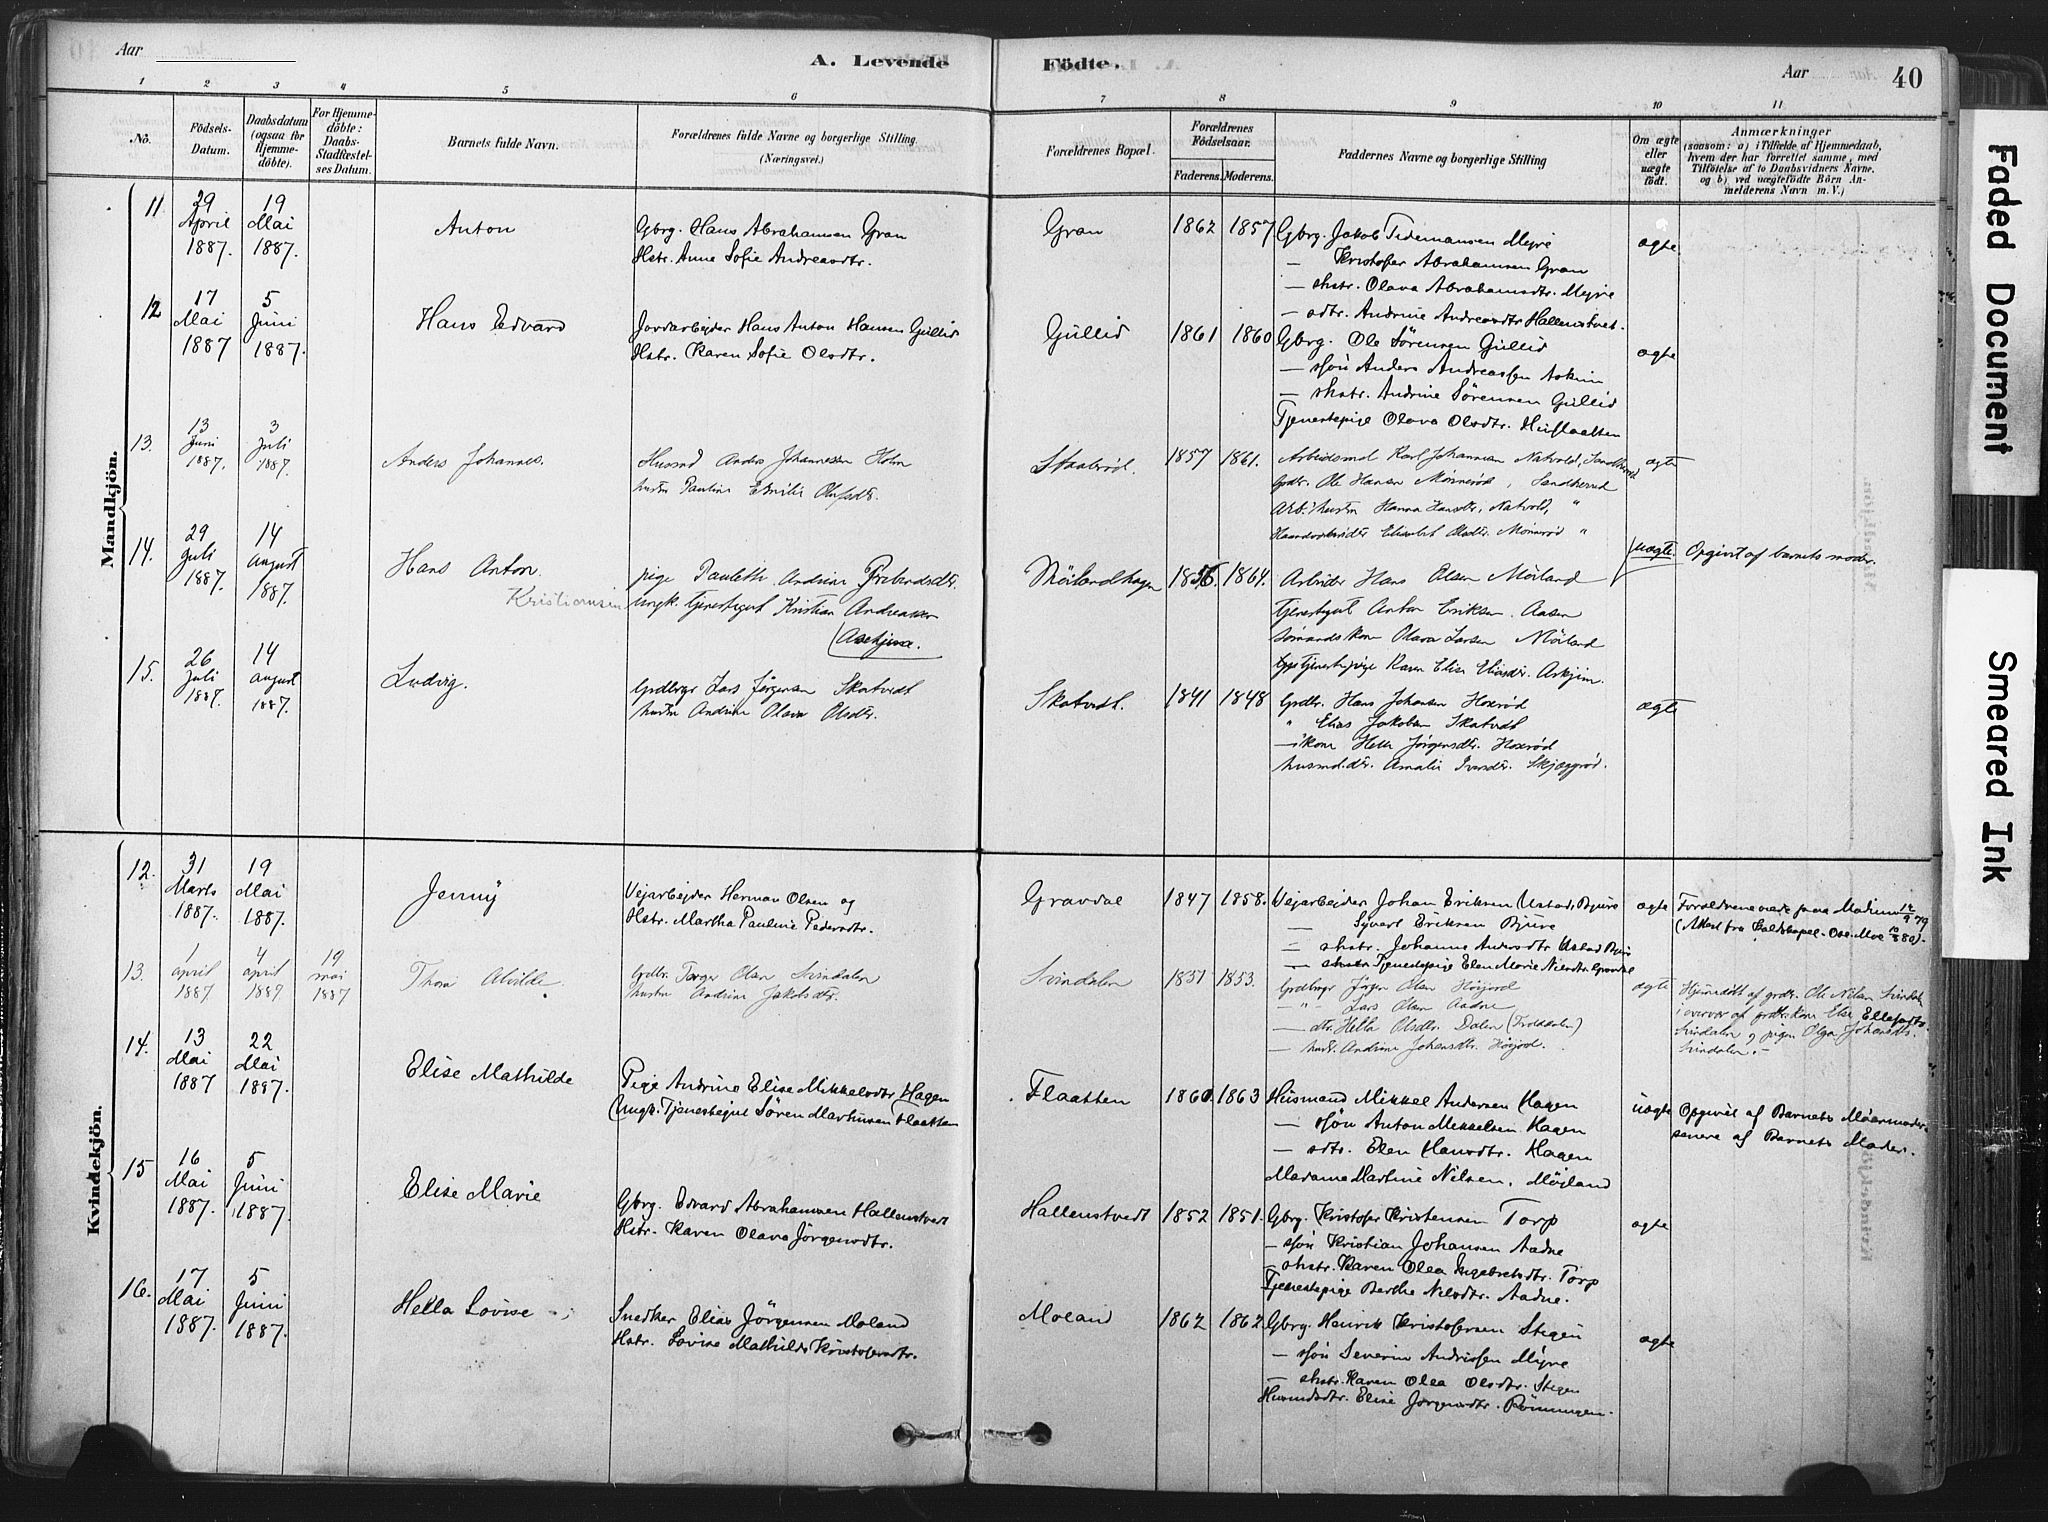 Aar
A. Levende
Födte.
Aar
40
1 2 3 4 5 6 7 8 9 10 11
No.
Födsels-
Datum.
Daabsdatum
(ogsaa for
Hjemme-
döbte).
For Hjemme-
döbte:
Daabs-
Stadfæstel-
ses Datum.
Barnets fulde Navn.
Forældrenes fulde Navne og borgerlige Stilling.
(Næringsvei.)
Forældrenes Bopæl.
Forældrenes
Födselsaar.
Faderens. Moderens.
Faddernes Navne og borgerlige Stilling
Om ægte
eller
uægte
födt.
Anmærkninger
(saasom: a) i Tilfælde af Hjemmedaab,
hvem der har forrettet samme, med
Tilföielse af to Daabsvidners Navne,
og b) ved uægtefödte Börn An-
melderens Navn m. V.)
Mandkjön.
11 29 April 1887. 19 Mai 1887. Anton
Gbrg. Hans Abrahamsen Gran
Hstr. Anne Sofie Andreasdtr.
Gran 1862 1857.
Gbrg. Jakob Tidemansen Myre
— Kristofer Abrahamsen Gran
— skstr. Olava Abrahamsdtr. Myre
— sdtr. Andrine Andreasdtr Hallenstvet.
ægte
12 17 Mai 1887 5 Juni 1887. Hans Edvard
Jordarbejder Hans Anton Hansen Gullid
Hstr. Karen Sofie Olsdtr.
Gullid 1861 1860
Gbrg. Ole Sörensen Gullid
— sön Anders Andreassen Askim
— skstr. Andrine Sörensen Gullid
Tjenestepige Olava Olsdtr. Huflaatten
ægte
13. 13 Juni 1887. 3 Juli 1887. Anders Johannes.
Husmd Anders Johannesen Holm
hustru Pauline Emilie Olufsdtr.
1857 1861.
Arbeidsmd Karl Johannsen Natvold, Sandherred
Grdbr. Ole Hansen Mönnerød, Sandherred
Arb. hustru Hanna Hansdtr, Natvold, "
Elisabet Olsdtr. Mönnerød "
ægte
14. 29 Juli 1887. 14 August 1887. Hans Anton.
Kristiansen
pige Pauline Andrine
Ungk. Tjenestegut Kristian Andreassen
(Askjem.
Möilandhagen 1856. 1864.
Arbeider Hans Olsen Möiland
Tjenestegut Anton Eriksen. Aasen
sömands kone Olava Larsen Möiland
Tjenestepige Karen Elise Eliasdr. Askjem.
uægte. Opgivet af barnets moder.
15. 26 Juli 1887. 14 August 1887. Ludvig.
Grdbrgr Lars Jørgensen Skatvedt
hustru Andrine Olava Olsdtr.
Skatvedt. 1841 1848
Grdbr. Hans Johansen Hoxrød
" Elias Jakobsen Skatvedt
— kone Helle Jørgensdtr. Hoxrød
husmd.dtr. Amalie Iversdtr. Skjæggrød.
ægte
Kvindekjön.
12. 31 Marts 1887. 19 Mai 1887. Jenny
Vejarbejder Herman Olsen og
Hstr. Martha Pauline Pedersdtr.
Gravdal 1847 1858.
Vejarbejder Johan Eriksen Ustad, Bjure
— Syvert Eriksen Bjure
— skstr. Johanne Andersdtr Ustad Bjure
— Tjenestepige Elen Marie Nilsdtr Gravdal
ægte
Forældrene viede
13. 1 april 1887 4 april 1887 19 mai 1887 Thora Alvilde.
Grdbr. Torger Olsen Svindalen
hustru Andrine Jakobsdtr.
Svindalen 1831 1853.
Grdbrgr Jørgen Olsen Høijord
— " — Lars Olsen Aadne
— dtr. Hella Olsdtr. Dalen (Trolddalen)
— hustr. Andrine Johansdtr. Høijord.
ægte
Hjemmedöbt af grdbr. Ole Nilsen Svindalen
i overvær af grdbr. kone Else Ellefsdtr.
Svindalen og pigen Olga Johansdtr.
Svindalen. —
14. 13 Mai 1887 22 Mai 1887. Elise Mathilde
Pige Andrine Elise Mikkelsdtr Hagen
Ungk. Tjenestegut Sören Markussen Flaatten
Flaatten 1860. 1863
Husmand Mikkel Andersen Hagen
— sön Anton Mikkelsen Hagen
— sdtr. Elen Hansdtr. Hagen
Madame Martine Nilsen. Möjland
uægte Opgivet af Barnets
senere af Barnets Moder.
15 16 Mai 1887. 5 Juni 1887. Elise Marie
Gbrg. Edvard Abrahamsen Hallenstvedt
Hstr. Karen Olava Jörgensdtr.
Hallenstvedt 1852 1851.
Gbrg. Kristofer Kristensen Torp
— sön Kristian Johansen Aadne
— skstr. Karen Olea Ingebretsdtr. Torp
Tjenestepige Berthe Nilsdtr. Aadne.
ægte
16. 17 Mai 1887. 5 Juni 1887. Hella Lovise
Snedker Elias Jörgensen Moland
Hstr. Lovise Mathilde Kristofersdtr.
Moland 1862 1862.
Gbrg. Henrik Kristofersen Stigen
— sön Severin Andreassen Myre
— skstr. Karen Olea Olsdtr. Stigen
Husmdsdtr. Elise Jörgensdtr. Rönningen.
ægte
Faded Document
Smeared Ink